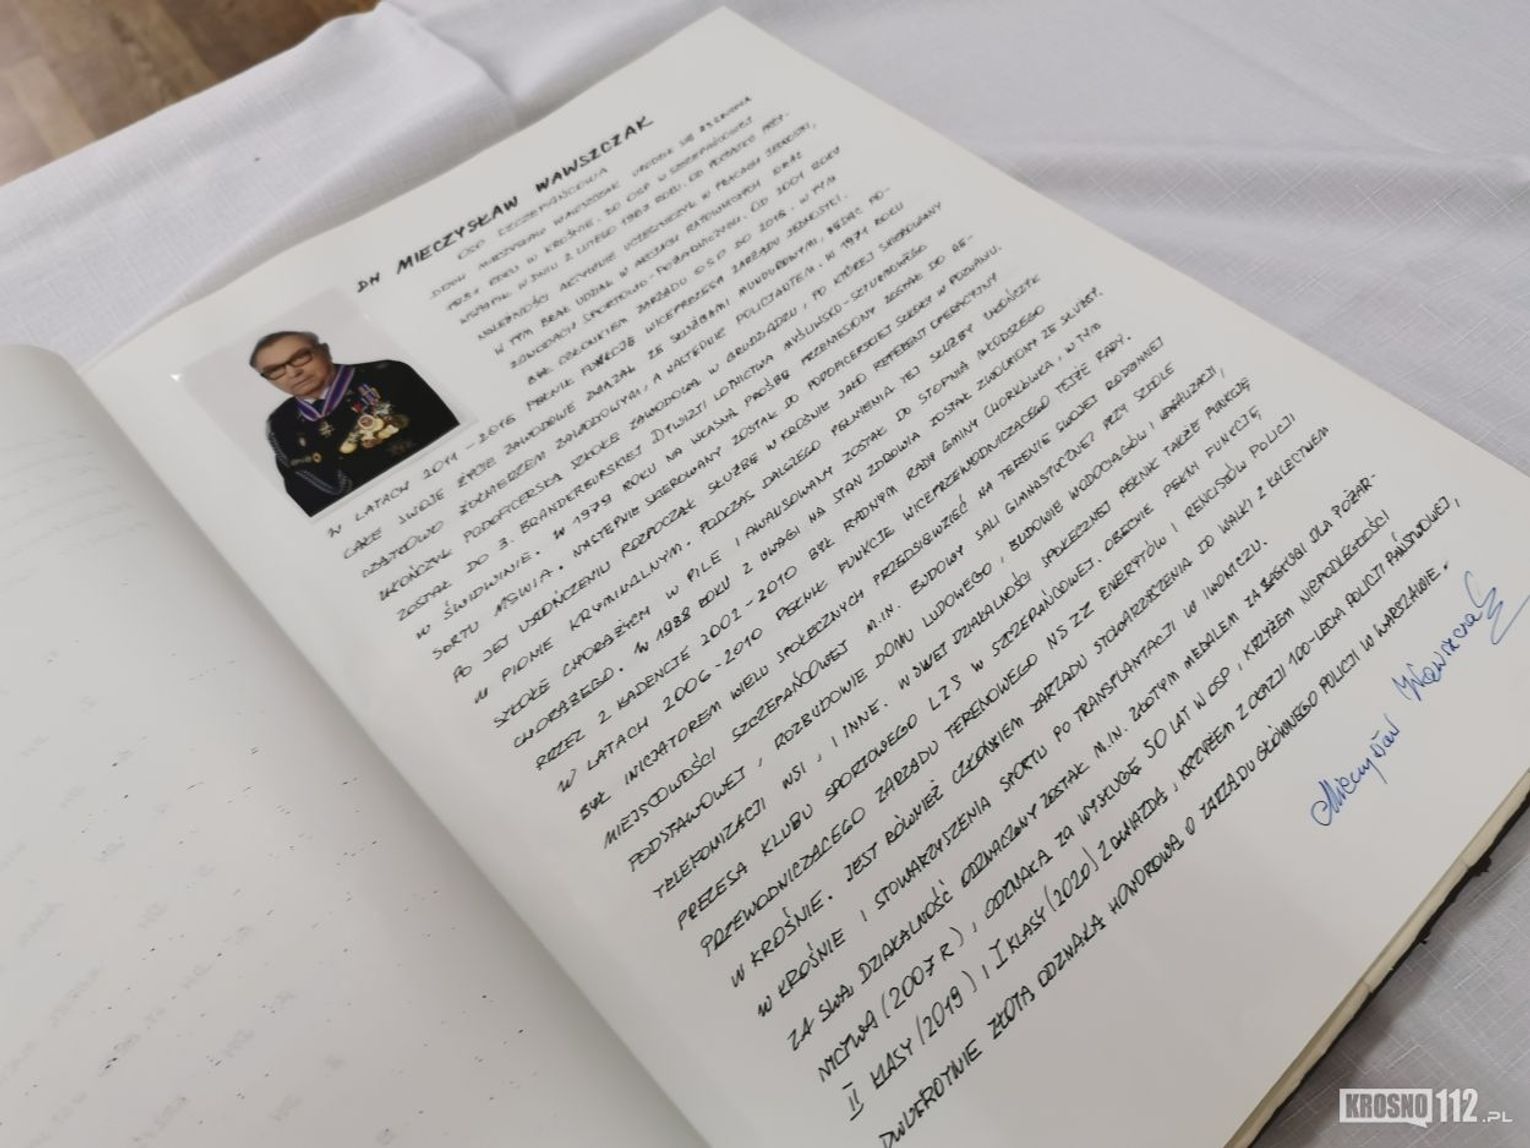 DH MIECZYSŁAW WAWSZCZAK
OSP SZCZEPAŃCOWA
DRUH MIECZYSŁAW WAWSZCZAK URODZIŁ SIĘ 23 CZERWCA
ROKU W KROŚNIE. DO OSP W SZCZEPAŃCOWEJ
WSTĄPIŁ W DNIU 2 LUTEGO 1967 ROKU. OD POCZĄTKU PRZY-
NALEŻNOŚCI AKTYWNIE UCZESTNICZYŁ W PRACACH JEDNOSTKI,
W TYM BRAŁ UDZIAŁ W AKCJACH RATOWNICZYCH ORAZ
ZAWODACH SPORTOWO-POŻARNICZYCH. OD 2001 ROKU
BYŁ CZŁONKIEM ZARZĄDU OSP DO 2016. W TYM
W LATACH 2011-2016 PEŁNIŁ FUNKCJĘ WICEPREZESA ZARZĄDU JEDNOSTKI.
CAŁE SWOJE ŻYCIE ZAWODOWE ZWIĄZAŁ ZE SŁUŻBAMI MUNDUROWYMI, BĘDĄC PO-
CZĄTKOWO ŻOŁNIERZEM ZAWODOWYM, A NASTĘPNIE POLICJANTEM. W 1971 ROKU
UKOŃCZYŁ PODOFICERSKĄ SZKOŁĘ ZAWODOWĄ W GRUDZIĄDZU, PO KTÓREJ SKIEROWANY
ZOSTAŁ DO 3. BRANDENBURSKIEJ DYWIZJI LOTNICTWA MYŚLIWSKO-SZTURMOWEGO
W ŚWIDWINIE. W 1979 ROKU NA WŁASNĄ PROŚBĘ PRZENIESIONY ZOSTAŁ DO RE-
SORTU MSWIA. NASTĘPNIE SKIEROWANY ZOSTAŁ DO PODOFICERSKIEJ SZKOŁY W POZNANIU.
PO JEJ UKOŃCZENIU ROZPOCZĄŁ SŁUŻBĘ W KROŚNIE JAKO REFERENT OPERACYJNY
W PIONIE KRYMINALNYM. PODCZAS DALSZEGO PEŁNIENIA TEJ SŁUŻBY UKOŃCZYŁ
SZKOŁĘ CHORĄŻYCH W PILE I AWANSOWANY ZOSTAŁ DO STOPNIA MŁODSZEGO
CHORĄŻEGO. W 1988 ROKU Z UWAGI NA STAN ZDROWIA ZOSTAŁ ZWOLNIONY ZE SŁUŻBY.
PRZEZ 2 KADENCJE 2002-2010 BYŁ RADNYM RADY GMINY CHORKÓWKA, W TYM
W LATACH 2006-2010 PEŁNIŁ FUNKCJĘ WICEPRZEWODNICZĄCEGO TEJŻE RADY.
BYŁ INICJATOREM WIELU SPOŁECZNYCH PRZEDSIĘWZIĘĆ NA TERENIE SWOJEJ RODZINNEJ
MIEJSCOWOŚCI SZCZEPAŃCOWEJ M.IN. BUDOWY SALI GIMNASTYCZNEJ PRZY SZKOLE
PODSTAWOWEJ, ROZBUDOWIE DOMU LUDOWEGO, BUDOWIE WODOCIĄGÓW I KANALIZACJI,
TELEFONIZACJI WSI, I INNE. W SWEJ DZIAŁALNOŚCI SPOŁECZNEJ PEŁNIŁ TAKŻE FUNKCJĘ
PREZESA KLUBU SPORTOWEGO LZS W SZCZEPAŃCOWEJ. OBECNIE PEŁNI FUNKCJĘ
PRZEWODNICZĄCEGO ZARZĄDU TERENOWEGO NSZZ EMERYTÓW I RENCISTÓW POLICJI
W KROŚNIE. JEST RÓWNIEŻ CZŁONKIEM ZARZĄDU STOWARZYSZENIA DO WALKI Z KALECTWEM
W KROŚNIE I STOWARZYSZENIA SPORTU PO TRANSPLANTACJI W IWONICZU.
ZA SWĄ DZIAŁALNOŚĆ ODZNACZONY ZOSTAŁ M.IN. ZŁOTYM MEDALEM ZA ZASŁUGI DLA POŻAR-
NICTWA (2007 R), ODZNAKĄ ZA WYSŁUGĘ 50 LAT W OSP, KRZYŻEM NIEPODLEGŁOŚCI
II KLASY (2019) I I KLASY (2020) Z GWIAZDĄ, KRZYŻEM Z OKAZJI 100-LECIA POLICJI PAŃSTWOWEJ,
DWUKROTNIE ZŁOTĄ ODZNAKĄ HONOROWĄ O ZARZĄDU GŁÓWNEGO POLICJI W WARSZAWIE.
Mieczysław Wawszczak
KROSNO112.PL